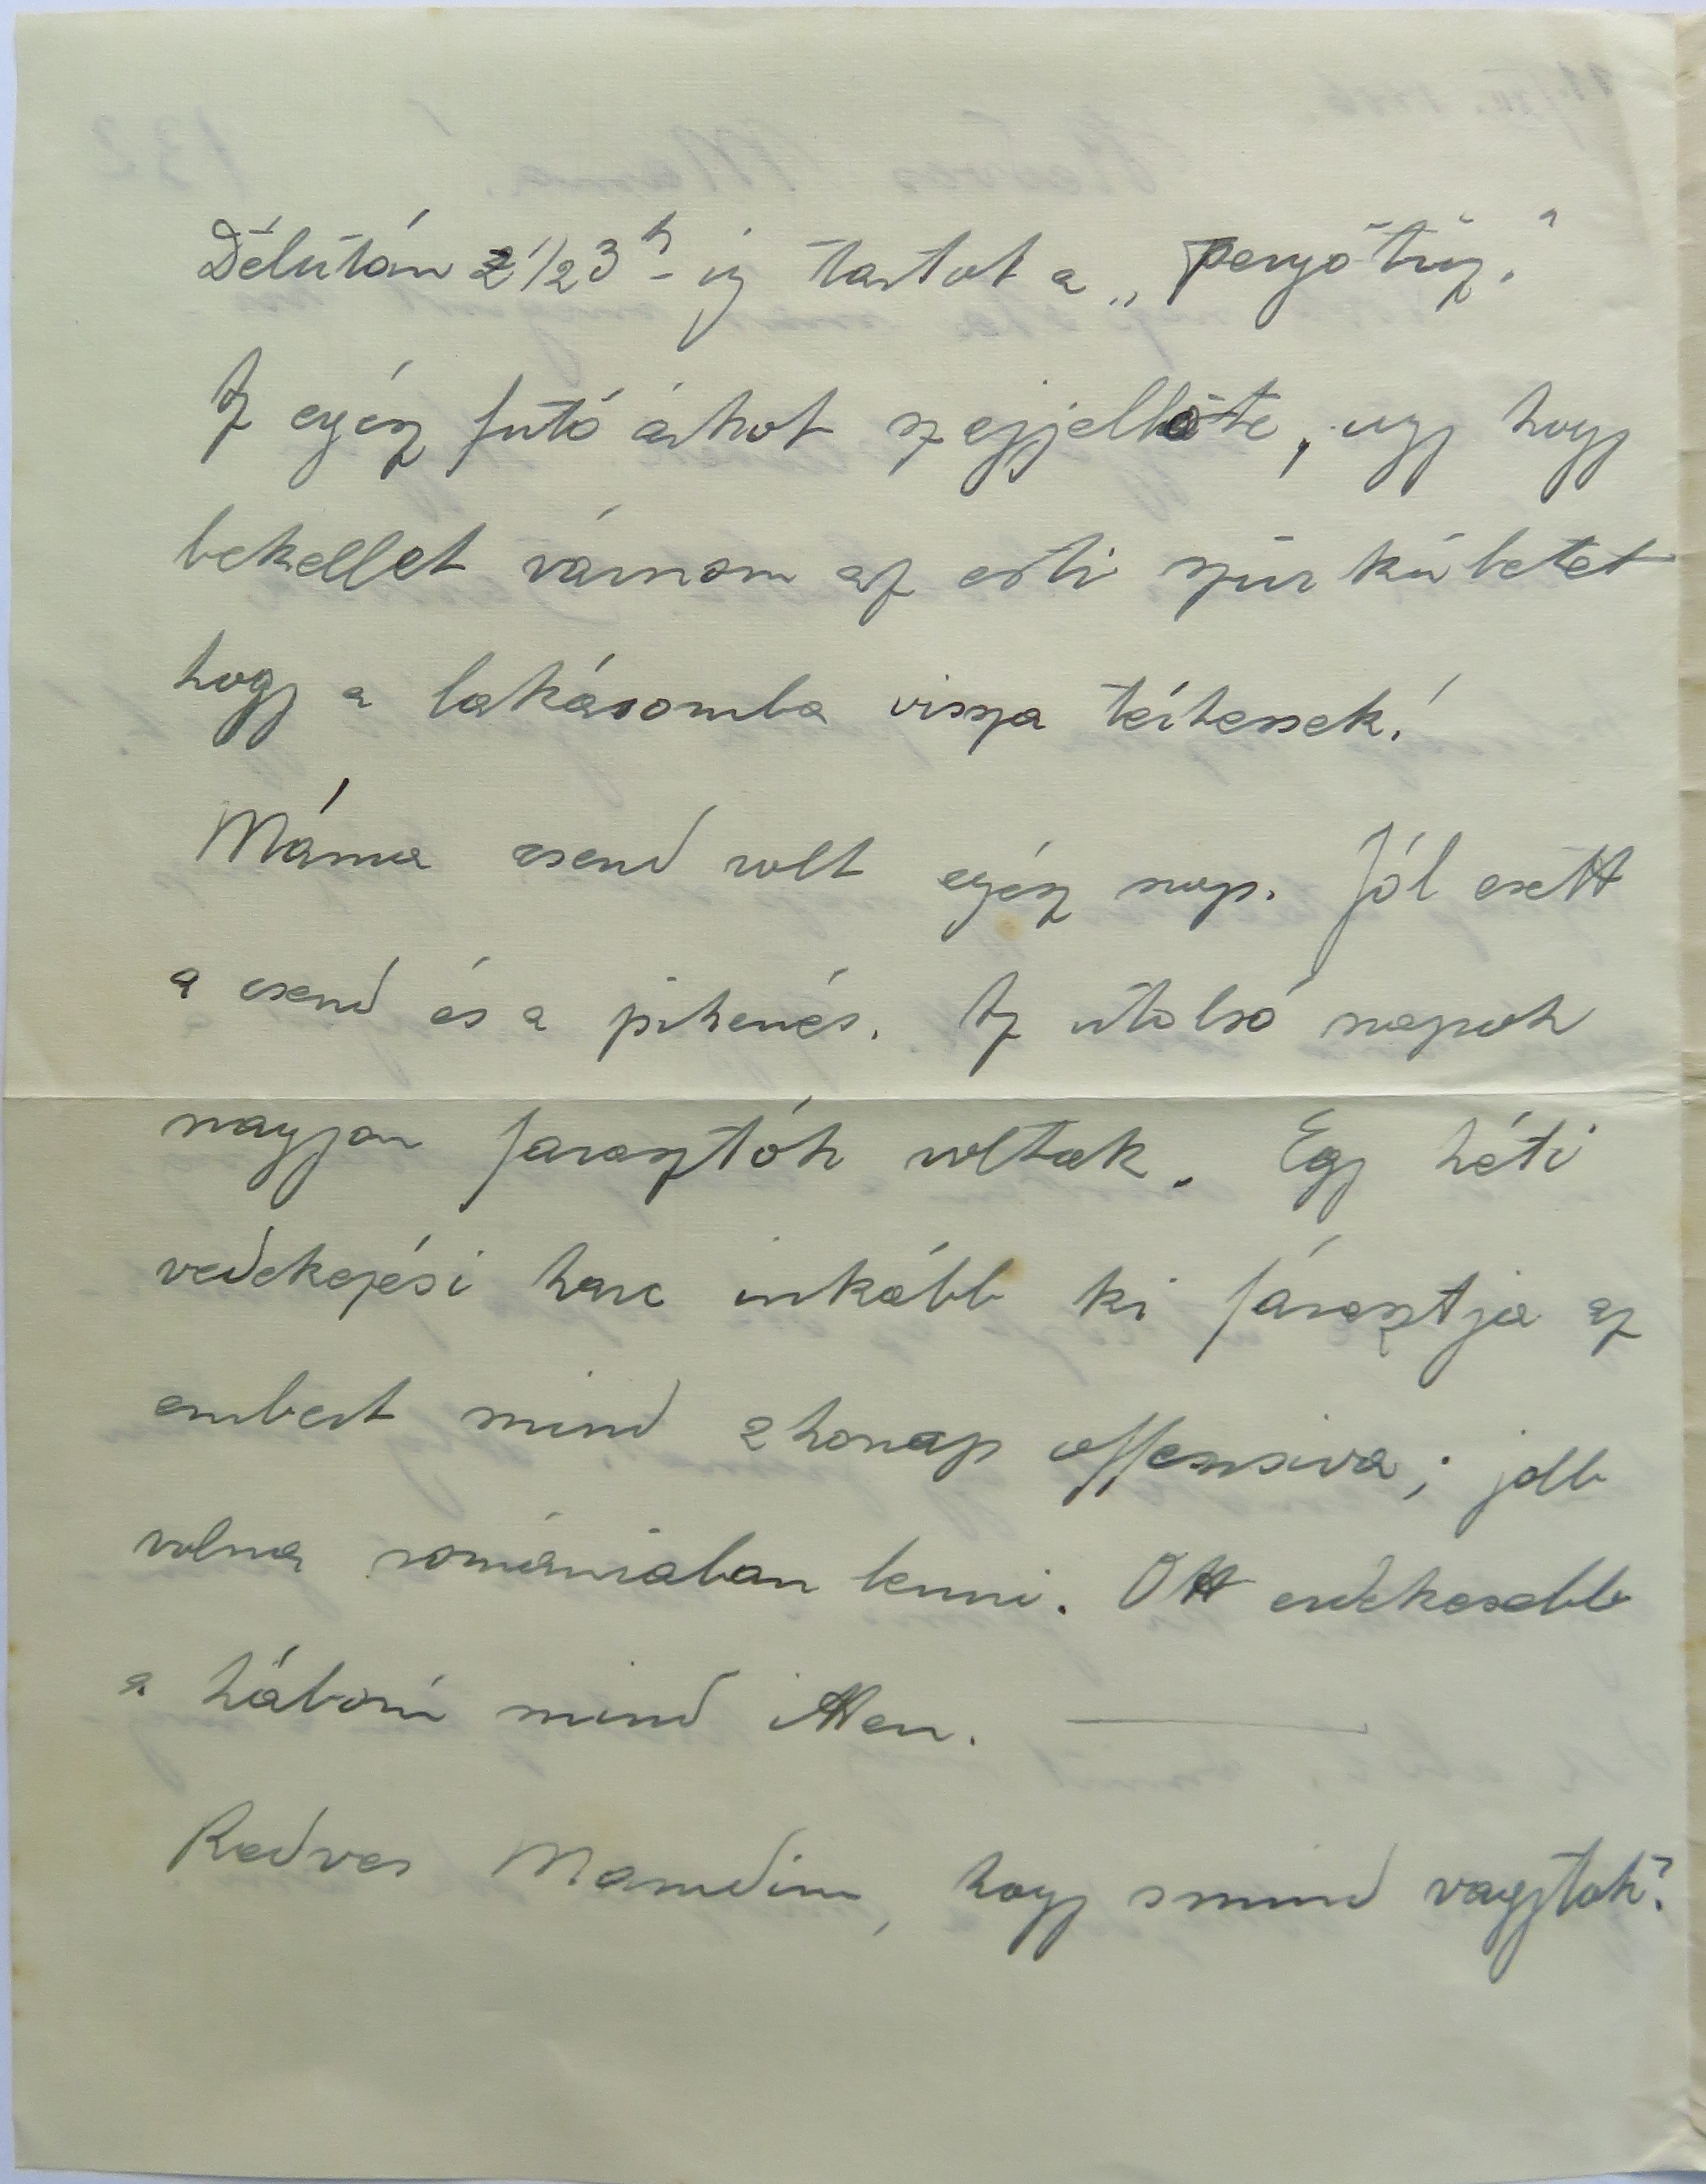 Délután 1/2 3h-ig tartot a „pergőtüz."
Az egész futó árkot szejjellőte, ugy hogy
bekellet várnom az esti szürkületet
hogy a lakásomba vissza térhessek!
Máma csend volt egész nap. Jól esett
a csend és a pihenés. Az utolsó napok
nagyon farasztók voltak. Egy héti
vedekezési harc inkább ki fárasztja az
embert mind 2 honap offensiva; jobb
volna romániaban lenni. Ott erdekesebb
a háború mind itten. —
Kedves Mamedim, hogy smind vagytok?